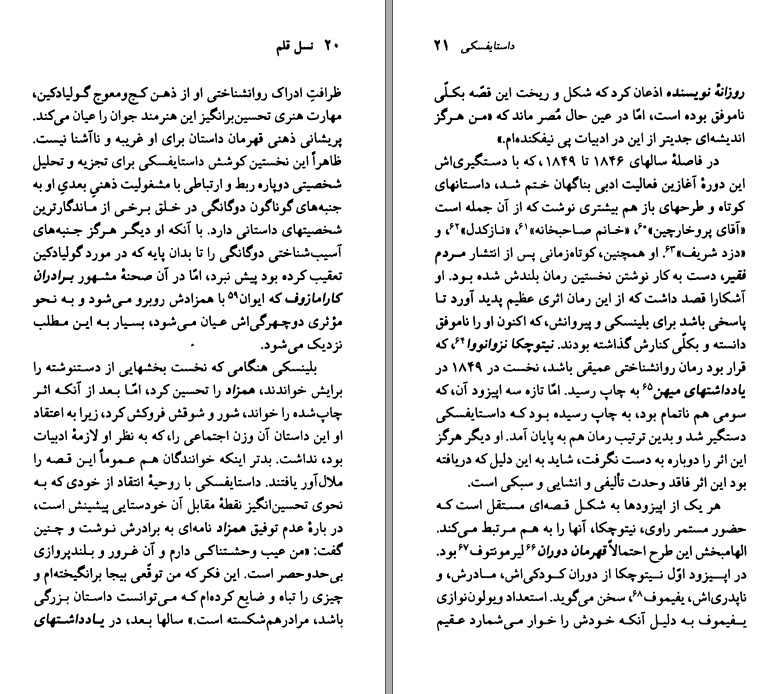 ۲۰ نسل قلم
ظرافتِ ادراک روانشناختی او از ذهن کج‌ومعوج گولیادکین،
مهارت هنری تحسین‌برانگیز این هنرمند جوان را عیان می‌کند.
پریشانی ذهنی قهرمان داستان برای او غریبه و ناآشنا نیست.
ظاهراً این نخستین کوشش داستایفسکی برای تجزیه و تحلیل
شخصیتی دوپاره ربط و ارتباطی با مشغولیت ذهنیِ بعدیِ او به
جنبه‌های گوناگون دوگانگی در خلق برخی از ماندگارترین
شخصیتهای داستانی دارد. با آنکه او دیگر هرگز جنبه‌های
آسیب‌شناختی دوگانگی را تا بدان پایه که در مورد گولیادکین
تعقیب کرده بود پیش نبرد، امّا در آن صحنهٔ مشهور برادران
کارامازوف که ایوان۵۹ با همزادش روبرو می‌شود و به نحو
مؤثری دوچهرگی‌اش عیان می‌شود، بسیار به این مطلب
نزدیک می‌شود.
بلینسکی هنگامی که نخست بخشهایی از دستنوشته را
برایش خواندند، همزاد را تحسین کرد، امّا بعد از آنکه اثر
چاپ‌شده را خواند، شور و شوقش فروکش کرد، زیرا به اعتقاد
او این داستان آن وزن اجتماعی را، که به نظر او لازمهٔ ادبیات
بود، نداشت. بدتر اینکه خوانندگان هم عموماً این قصه را
ملال‌آور یافتند. داستایفسکی با روحیهٔ انتقاد از خودی که به
نحوی تحسین‌انگیز نقطهٔ مقابل آن خودستایی پیشینش است،
در بارهٔ عدم توفیق همزاد نامه‌ای به برادرش نوشت و چنین
گفت: «من عیب وحشتناکی دارم و آن غرور و بلندپروازی
بی‌حدوحصر است. این فکر که من توقّعی بیجا برانگیخته‌ام و
چیزی را تباه و ضایع کرده‌ام که می‌توانست داستان بزرگی
باشد، مرادرهم‌شکسته است.» سالها بعد، در یادداشتهای
داستایفسکی ۲۱
روزانهٔ نویسنده اذعان کرد که شکل و ریخت این قصّه بکلّی
ناموفق بوده است، امّا در عین حال مُصر ماند که «من هرگز
اندیشه‌ای جدیتر از این در ادبیات پی نیفکنده‌ام.»
در فاصلهٔ سالهای ۱۸۴۶ تا ۱۸۴۹، که با دستگیری‌اش
این دورهٔ آغازین فعالیت ادبی بناگهان ختم شد، داستانهای
کوتاه و طرحهای باز هم بیشتری نوشت که از آن جمله است
«آقای پروخارچین»۶۰، «خانم صاحبخانه»۶۱، «نازکدل»۶۲، و
«دزد شریف»۶۳. او همچنین، کوتاه‌زمانی پس از انتشار مردم
فقیر، دست به کار نوشتن نخستین رمان بلندش شده بود. او
آشکارا قصد داشت که از این رمان اثری عظیم پدید آورد تا
پاسخی باشد برای بلینسکی و پیروانش، که اکنون او را ناموفق
دانسته و بکلّی کنارش گذاشته بودند. نیتوچکا نزوانووا۶۴، که
قرار بود رمان روانشناختی عمیقی باشد، نخست در ۱۸۴۹ در
یادداشتهای میهن۶۵ به چاپ رسید. امّا تازه سه اپیزود آن، که
سومی هم ناتمام بود، به چاپ رسیده بود که داستایفسکی
دستگیر شد و بدین ترتیب رمان هم به پایان آمد. او دیگر هرگز
این اثر را دوباره به دست نگرفت، شاید به این دلیل که دریافته
بود این اثر فاقد وحدت تألیفی و انشایی و سبکی است.
هر یک از اپیزودها به شکل قصه‌ای مستقل است که
حضور مستمر راوی، نیتوچکا، آنها را به هم مرتبط می‌کند.
الهامبخش این طرح احتمالاً قهرمان دوران۶۶ لیرمونتوف۶۷ بود.
در اپیزود اوّل نیتوچکا از دوران کودکی‌اش، مادرش، و
ناپدری‌اش، یفیموف۶۸، سخن می‌گوید. استعداد ویولون‌نوازی
یفیموف به دلیل آنکه خودش را خوار می‌شمارد عقیم